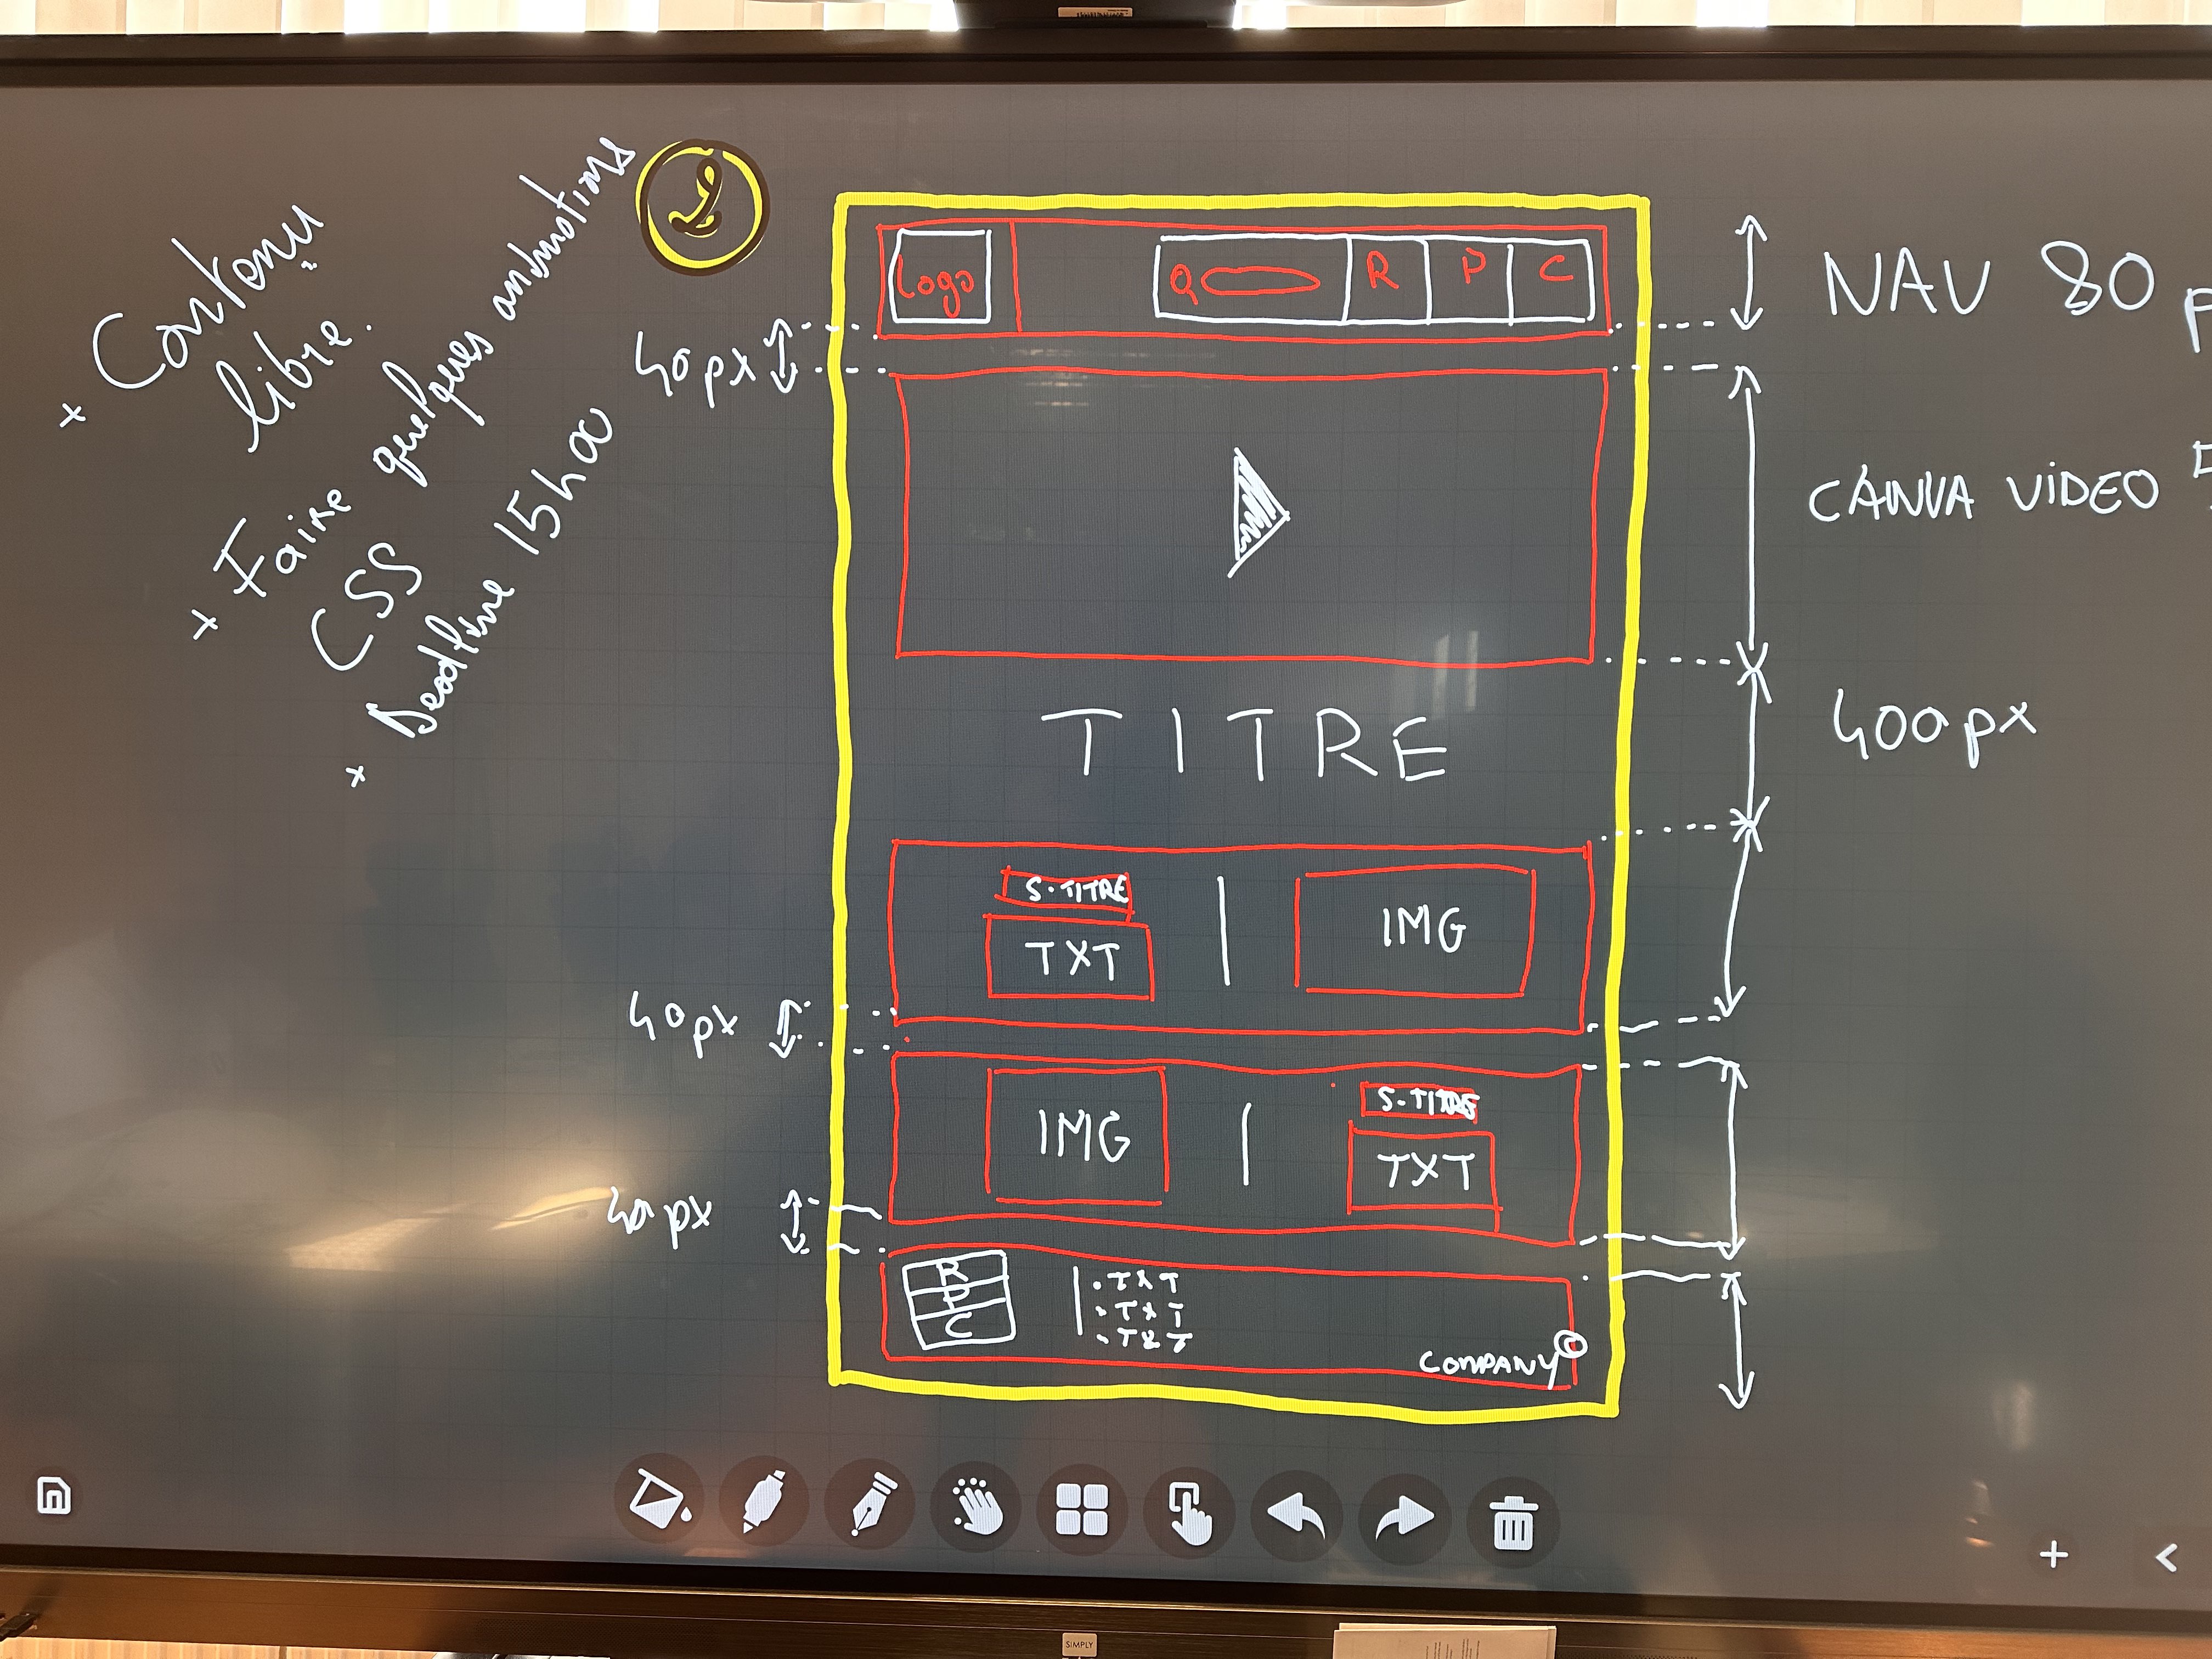 × Contenu
libre.
× Faire quelques animations
CSS
× Deadline 15h00
Logo
Q
R
P
C
NAV 80 p
40px
CANVA VIDEO 5
TITRE
400px
S.TITRE
TXT
IMG
40px
IMG
S-TITRE
TXT
40px
R
P
C
. TXT
. TXT
. TXT
COMPANY©
SIMPLY